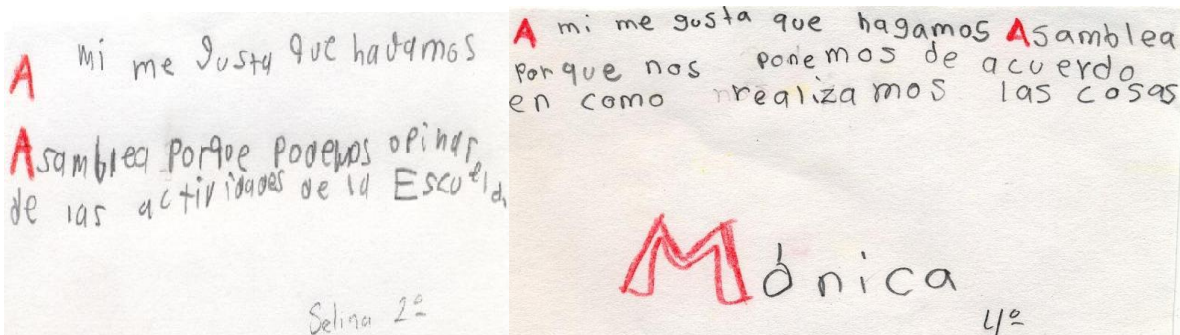 A mi me gusta que hagamos
Asamblea Porque Podemos opinar
de las actividades de la Escuela.
Selina 2º
A mi me gusta que hagamos Asamblea
Porque nos ponemos de acuerdo
en como realizamos las cosas
Mónica
4º